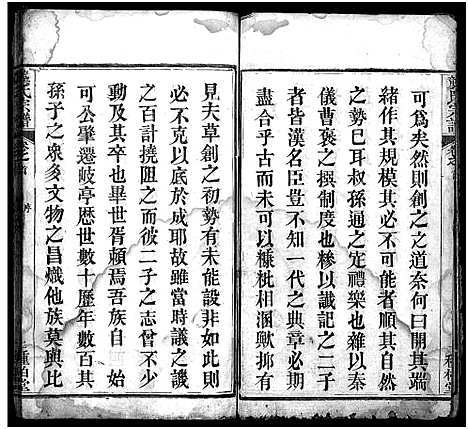 可爲矣然則創之之道奈何曰開其端
緒作其規模其必不可能者順其自然
之勢已耳叔孫通之定禮樂也雜以
儀曹褒之撰制度也糝以讖記之二子
者皆漢名臣豈不知一代之典章必期
盡合乎古而未可以糠秕相溷歟抑亦
見夫草創之初勢有未能設非如此則
必不克以底於成耶故雖當時議之議
之百計撓阻之而彼二子之志曾不少
動及其畢世胥賴焉吾族自 始
可公肇遷岐亭歷世數十歷年數百其
孫子之衆多文物之昌熾他族莫與比
氏宗譜
種柏堂